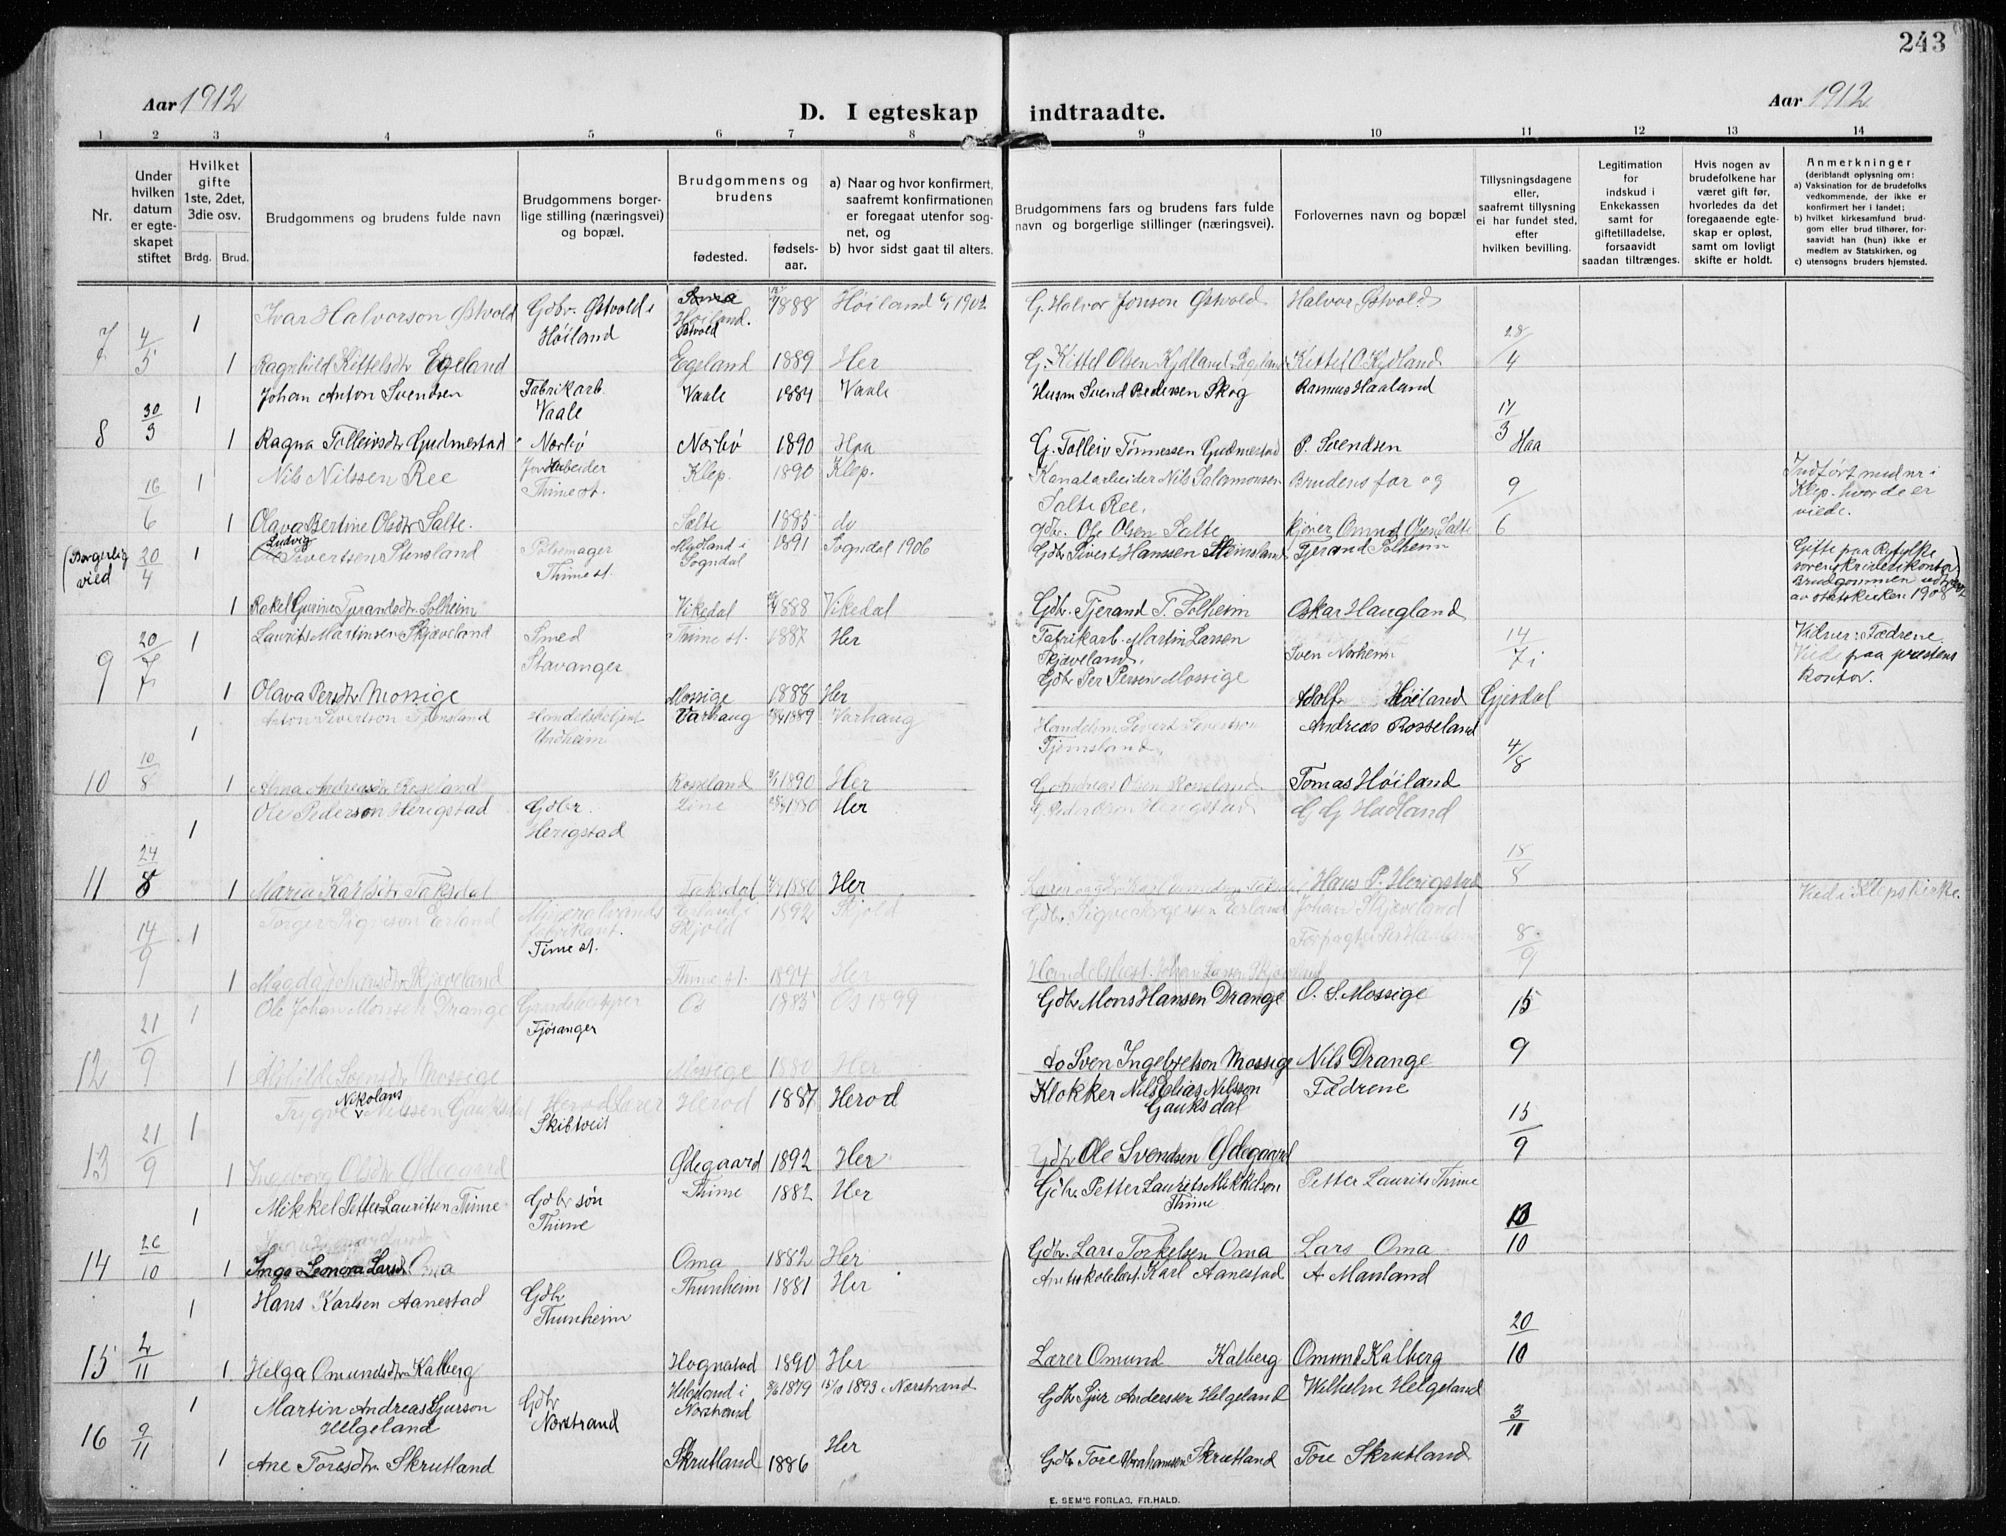 243
Aar 1912
D. I egteskap indtraadte.
Aar 1912
1 2 3 4 5 6 7 8 9 10 11 12 13 14
Nr.
Under hvilken datum er egteskapet stiftet
Hvilket gifte 1ste, 2det, 3die osv.
Brdg. Brud.
Brudgommens og brudens fulde navn
Brudgommens borgerlige stilling (næringsvei) og bopæl.
Brudgommens og brudens
fødested.
fødselsaar.
a) Naar og hvor konfirmert, saafremt konfirmationen er foregaat utenfor sognet, og
b) hvor sidst gaat til alters.
Brudgommens fars og brudens fars fulde navn og borgerlige stillinger (næringsvei).
Forlovernes navn og bopæl
Tillysningsdagene eller, saafremt tillysning ei har fundet sted, efter hvilken bevilling.
Legitimation for indskud i Enkekassen samt for giftetilladelse, forsaavidt saadan tiltrænges.
Hvis nogen av brudefolkene har været gift før, hvorledes da det foregaaende egteskap er opløst, samt om lovligt skifte er holdt.
Anmerkninger
(deriblandt oplysning om:
a) Vaksination for de brudefolks vedkommende, der ikke er konfirmert her i landet;
b) hvilket kirkesamfund brudgom eller brud tilhører, forsaavidt han (hun) ikke er medlem av Statskirken, og
c) utensogns bruders hjemsted.
7 4/5 1 Ivar Halvorson Østvold Gdbr. Østvold i Høiland Høiland. Østvold 1888 Høiland 1902 G. Halvor Jonson Østvold Halvor Østvold 28/4
1 Ragnhild Kittelsdtr Egeland Egeland 1889 Her G. Kittel Olsen Kydland Egeland Kittel O Kydland
8 30/3 1 Johan Anton Svendsen Fabrikarb. Vaale Vaale 1884 Vaale Husm Svend Pedersen Skog Rasmus Haaland 17/3 Haa
1 Ragna Tolleivsdtr Gudmestad Nærbø Nærbø 1890 Haa G. Tolleiv Tønnessen Gudmestad P. Svendsen
16/6 1 Nils Nilssen Ree Jordarbeider Thime st. Klep. 1890 Klep. Kanalarbeider Nils Salomonsen Salte Ree. Brudens far og 9/6 Indført med nr i Klep. hvor de er viede.
1 Olava Bertine Olsdtr Salte. Salte 1885 do gdbr. Ole Olsen Salte kjører Omund Olsen Salte
(Borgerlig vied 20/4 1 Ludvig Sivertsen Stensland Pølsemager Thime st. Mydland i Sogndal 1891 Sogndal 1906 Gdbr Sivert Hanssen Steinsland Tjerand Solheim Gifte paa Ryfylke sorenskriverkontor Brudgommen udtraadt av statskirken 1908
1 Rakel Gurine Tjerandsdtr Solheim Vikedal 1888 Vikedal Gdbr. Tjerand T. Solheim Oskar Haugland
9 20/7 1 Laurits Martinsen Skjæveland Smed Stavanger Thime st. 1887 Her Fabrikarb. Martin Larsen Skjæveland. Sven Norheim 14/7 i Gjesdal Vitner: Fædrene. Viede paa prestens kontor.
1 Olava Persdtr Mossige Mossige 1888 Her Gdbr Per Persen Mossige Adolf Høiland
10 10/8 1 Anton Sivertson Tjemsland Handelsbetjent Undheim Varhaug 1889 Varhaug Handelsm. Sivert Sivertson Tjemsland. Andreas Rosseland 4/8
1 Alma Andreasdtr Rosseland Rosseland 1890 Her G. Andreas Olsen Rosseland. Tomas Høiland
11 24/8 1 Ole Pederson Herigstad Gdbr. Herigstad Line 1880 Her G. Peder Olson Herigstad G G Hadland 18/8
1 Maria Karlsdtr Taksdal Taksdal 1880 Her Hans P. Herigstad
14/9 1 Torger Sigveson Erland Mineralvandsfabrikant. Time st. Erland i Skjold 1892 Skjold Gdbr. Sigve Erland Johan Skjæveland 8/9 Vied i Kleps kirke.
1 Magda Johansdtr Skjæveland Thime st. 1894 Her Handelsbest. Johan Larsen Skjæveland
12 21/9 1 Ole Johan Monsen Drange Fjøsanger Os 1885 Os 1899 Gdbr Mons Hansen Drange O. S. Mossige 15/9
1 Alvhilde Svensdtr Mossige Mossige 1880 Her do Sven Ingebretson Mossige Nils Drange
13 21/9 1 Trygve Nikolaus Nilssen Gauksdal Lærer Skibtveit Herod 1887 Herod Klokker Nils Elias Nilsson Gauksdal Fædrene 15/9
1 Ingeborg Olsdtr Ødegaard Ødegaard 1892 Her Gdbr Ole Svendsen Ødegaard
14 26/10 1 Mikkel Petter Lauritsen Thime Gdbr søn Thime Thime 1882 Her Gdbr. Petter Laurits Mikkelson Thime Petter Laurits Thime 13/10
1 Inga Lenora Larsd. Oma Oma 1882 Her Gdbr. Lars Torkelsen Oma Lars Oma
15 2/11 1 Hans Karlsen Aanestad Gdbr Thunheim Thunheim 1881 Her Amtsskolebest. Karl Aanestad A Mauland 20/10
1 Helga Omundsdtr Kalberg Hognestad 1890 Her Lærer Omund Kalberg Omund Kalberg
16 9/11 1 Martin Andreas Sjurson Helgeland Gdbr Nærstrand Helgeland i Nærstrand 1879 15/10 1893 i Nærstrand Gdbr Sjur Anderssen Helgeland Wilhelm Helgeland 3/11
1 Ane Toresdtr Skrutland Skrutland 1886 Her Gdbr Tore Abrahamsen Skrutland Tore Skrutland
E. SEM'S FORLAG, FR.HALD.